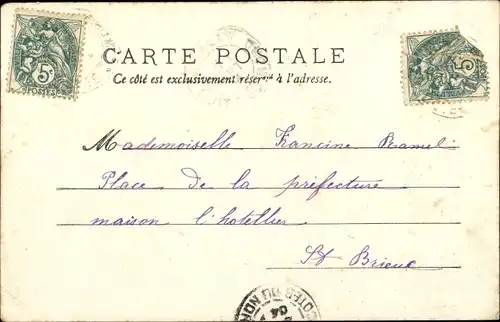 CARTE POSTALE
Ce côté est exclusivement réservé à l'adresse.
5c
POSTES
5c
Mademoiselle Francine Ramel
Place de la préfecture
maison l'hotellier
St Brieuc
COTES DU NORD
04